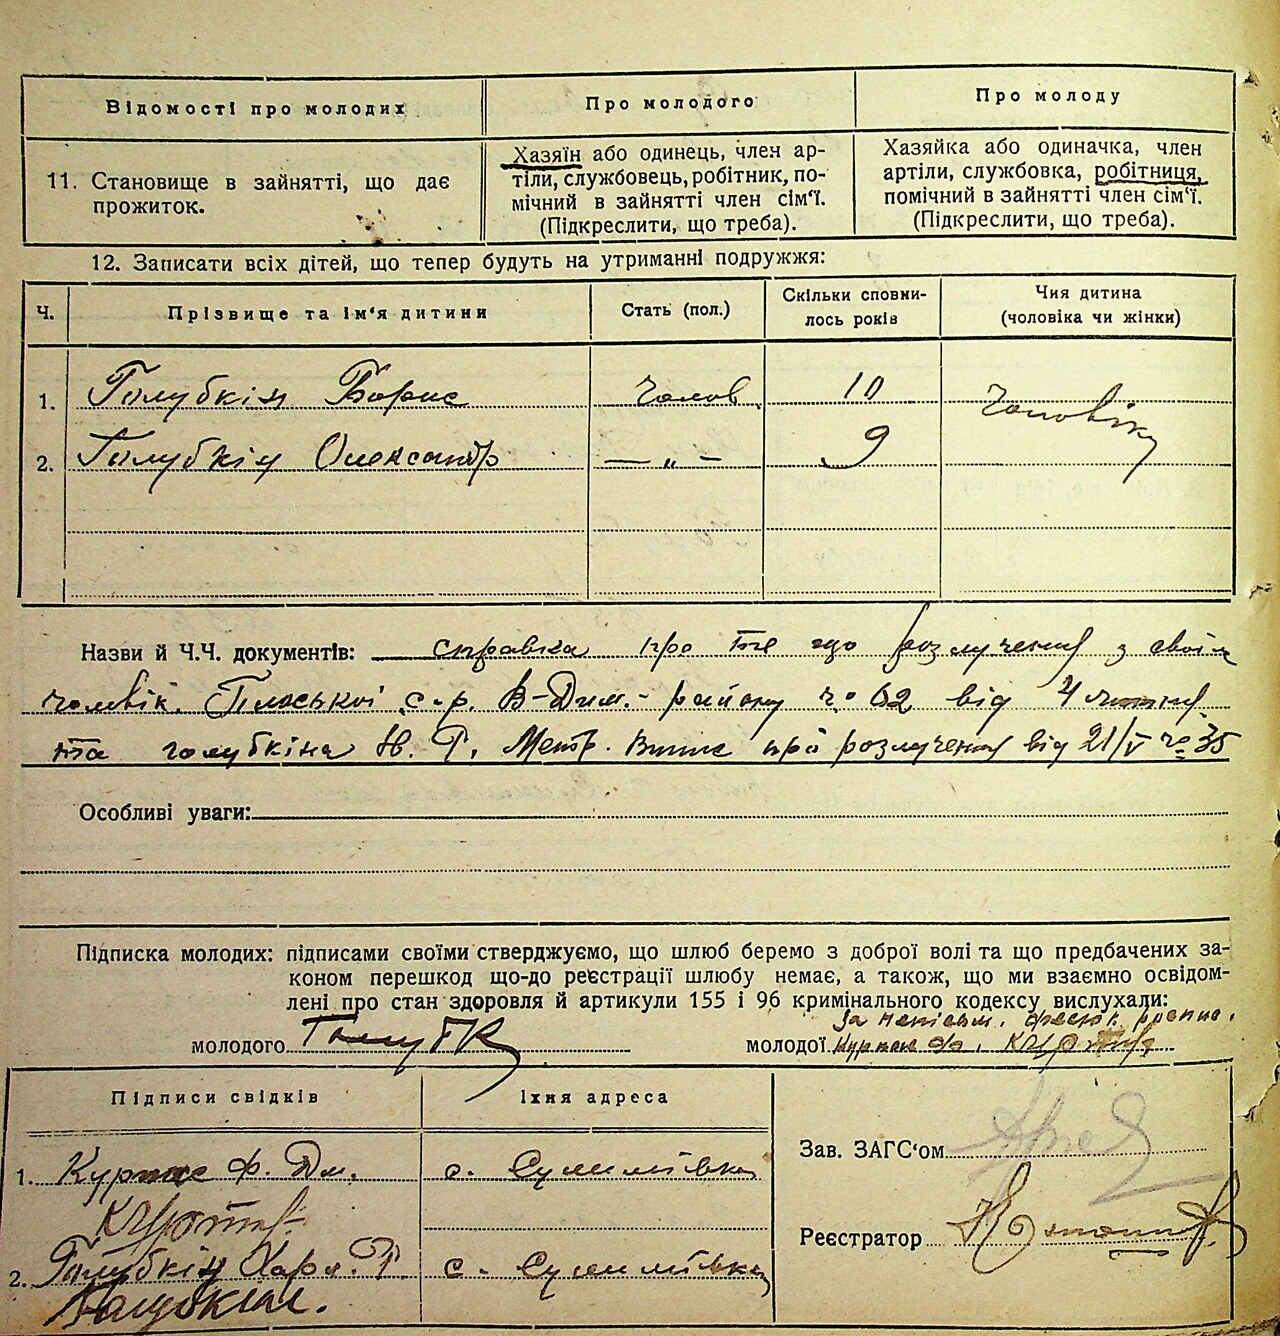 Відомості про молодих
Про молодого
Про молоду
11. Становище в зайнятті, що дає
прожиток.
Хазяїн або одинець, член ар-
тіли, службовець, робітник, по-
мічний в зайнятті член сім'ї.
(Підкреслити, що треба).
Хазяйка або одиначка, член
артіли, службовка, робітниця,
помічний в зайнятті член сім'ї.
(Підкреслити, що треба).
12. Записати всіх дітей, що тепер будуть на утриманні подружжя:
Ч.
Прізвище та ім'я дитини
Стать (пол.)
Скільки сповни-
лось років
Чия дитина
(чоловіка чи жінки)
1. Голубкін Борис чолов 10 чоловіку
2. Голубкін Олександр — „ — 9
Назви й Ч.Ч. документів: справка про те що розлучений з своїм
чоловік. с-р. В-Дим. району ч. 62 від 4
та голубкіна Н. Г. Метр. Випис про розлучення від 21/V № 35
Особливі уваги:
Підписка молодих: підписами своїми стверджуємо, що шлюб беремо з доброї волі та що предбачених за-
коном перешкод що-до реєстрації шлюбу немає, а також, що ми взаємно освідом-
лені про стан здоровля й артикули 155 і 96 кримінального кодексу вислухали:
молодого
за неписьм.
молодої
Підписи свідків
Їхня адреса
1. Ф. Дм. с. Сулимівка
2. Голубкін Хар. Г. с. Сулимівка
Зав. ЗАГС'ом
Реєстратор